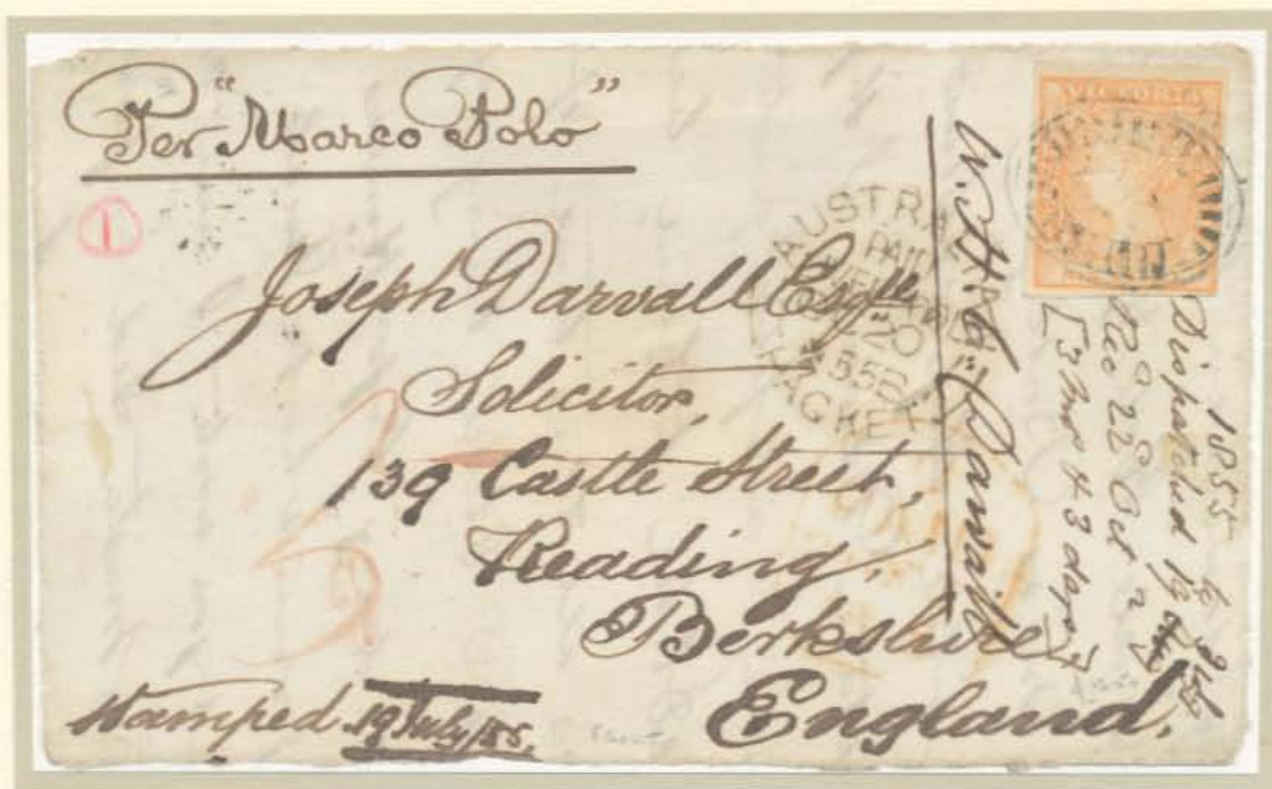 Per "Marco Polo"
1
VICTORIA
Joseph Darvall Esq.re
Solicitor,
139 Castle Street,
Reading,
Berkshire
England.
Stamped 19 July/55.
AUSTRA
PAID
20
PACKET
W. H. Darvall
1855
Dispatched 19 July
Rec 22 Oct
[3 mos & 3 days]
3